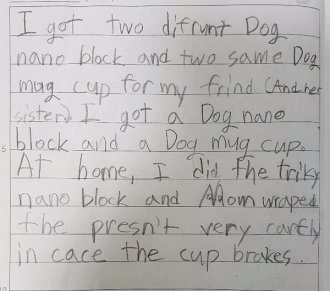 I got two difrunt Dog
nano block and two same Dog
mug cup for my frind (And her
sister) I got a Dog nano
block and a Dog mug cup.
At home, I did the triky
nano block and Mom wraped
the presn't very carfly
in cace the cup brakes.